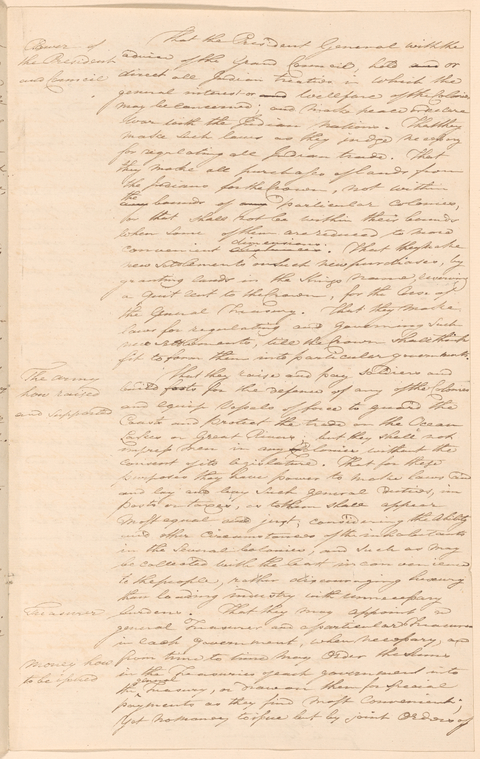 Power of
the President
and Council
That the President General with the
advice of the Grand Council, hold and or
direct all Indian treaties in which the
general interest or and Wellfare of the Colonies
may be concerned; and make peace or declare
War with the Indian Nations. That they
make such laws as they judge necessary
for regulating all Indian trade. That
they make all purchases of lands from
the Indians for the Crown, not within
the bounds of particular Colonies,
or that shall not be within their bounds
when some of them are reduced to more
convenient dimensions. That they make
new Settlements on such new purchases, by
granting lands in the Kings name, reserving
a Quit rent to the Crown, for the Use of
the General Treasury. That they make
laws for regulating and governing such
new Settlements, till the Crown shall think
fit to form them into particular governments.
The army
how raised
and supported
That they raise and pay Soldiers and
build forts for the defence of any of the Colonies
and equip Vessels of force to guard the
Coasts and Protect the trade on the Ocean
Lakes or Great Rivers; but they shall not
impress men in any Colonies without the
consent of its legislature. That for these
purposes they have power to make laws and
and lay and levy such general Duties, im
posts or taxes, as to them shall appear
most equal and just, considering the Ability
and other circumstances of the inhabitants
in the Several Colonies, and such as may
be collected with the least inconvenience
to the people, rather discouraging luxury
than loading industry with unnecessary
Treasurer
burdens. That they may appoint a
general Treasurer and a particular Treasurer
in each government, when necessary, and
Money how
to be issued
from time to time may Order the Sums
in the Treasuries of each government into
the general Treasury, or draw on them for Special
payments as they find most convenient;
Yet no money to issue but by joint Orders of